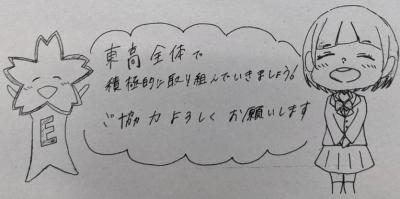 東高全体で
積極的に取り組んでいきましょう!
ご協力よろしくお願いします
E